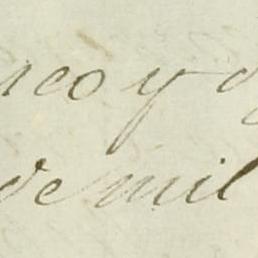 nco y d
de mil